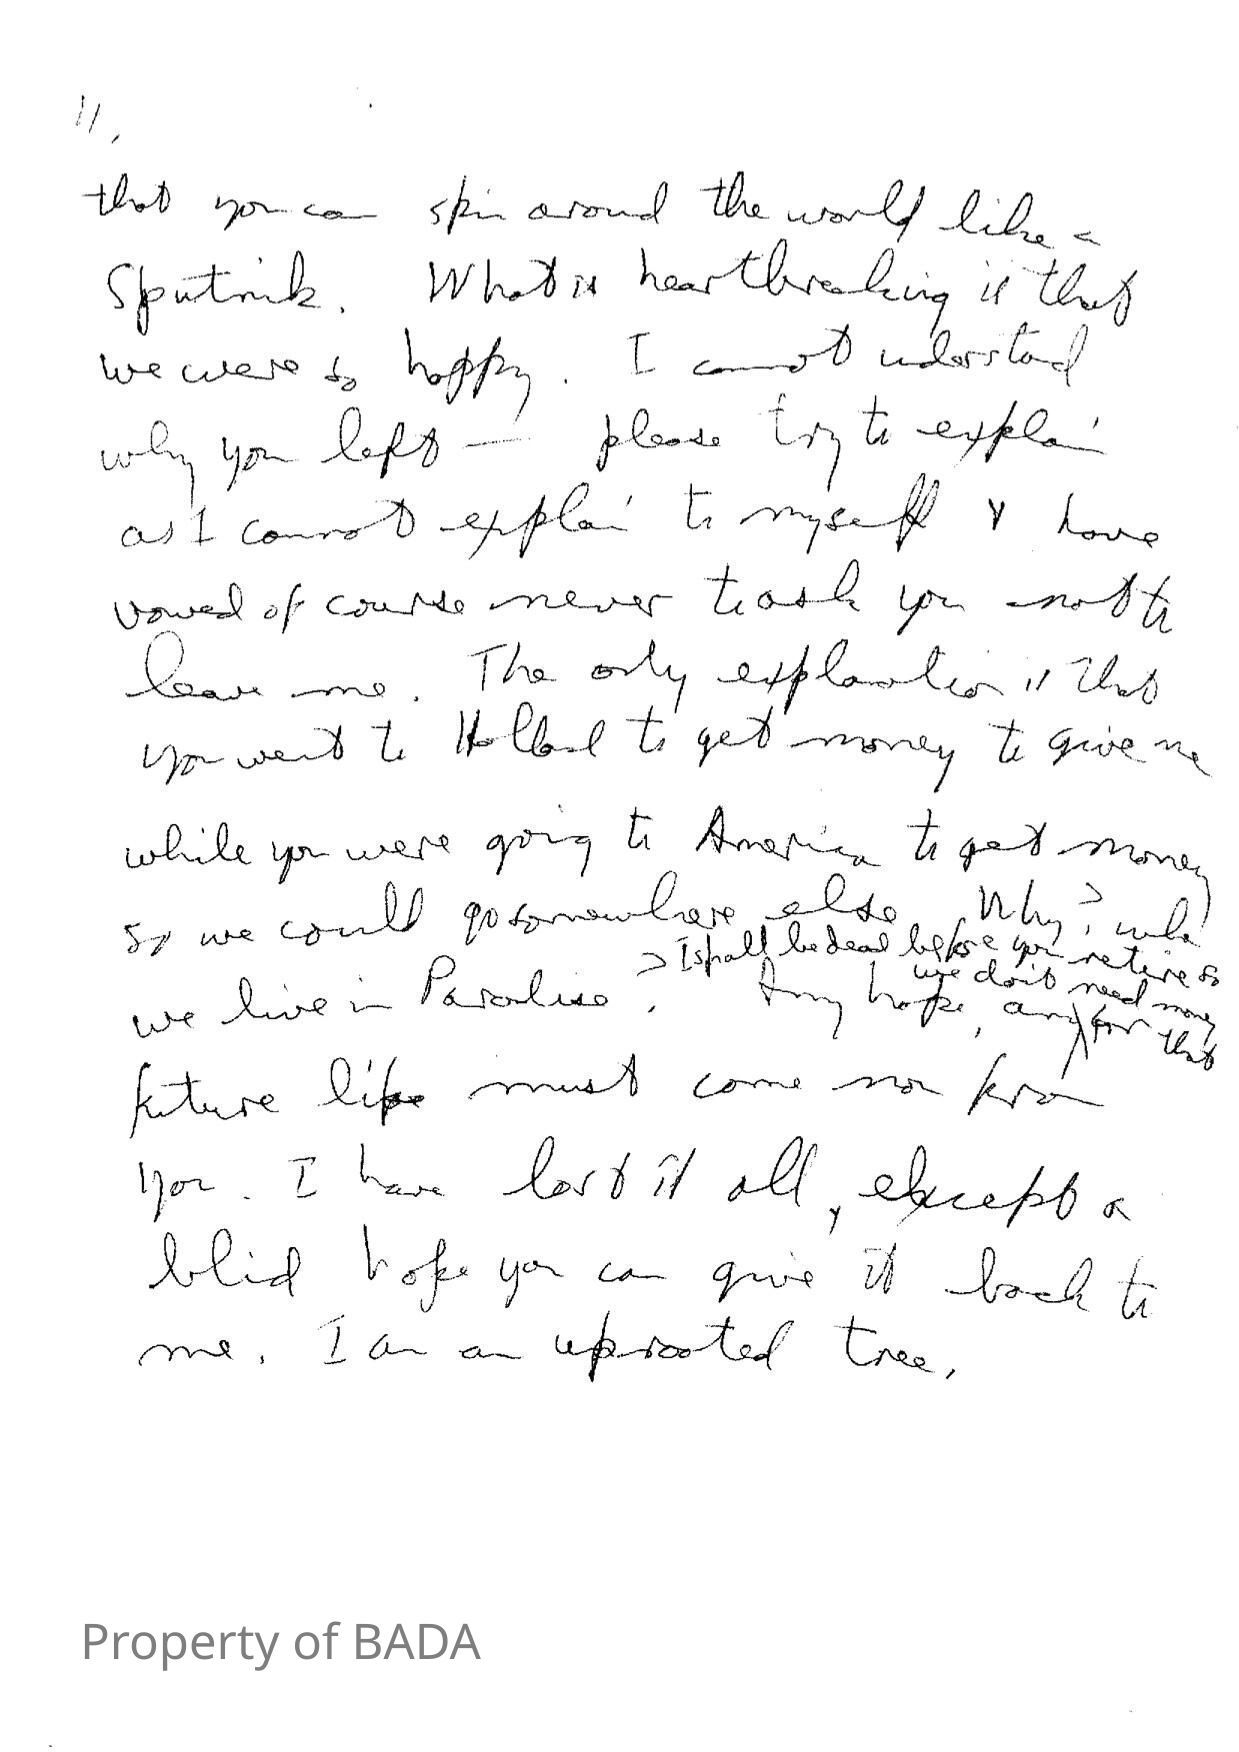 11,
that you can spin around the world like a
Sputnik. What is heartbreaking is that
we were so happy. I cannot understand
why you left — please try to explain
as I cannot explain to myself & have
vowed of course never to ask you not to
leave me. The only explanation is that
you went to Holland to get money to give me
while you were going to America to get money
so we could go somewhere else. Why? when
we live in Paradise?
> I shall be dead before you retire so
we don't need money
for that
Any hope, any
future life must come now from
you. I have lost it all, except a
blind hope you can give it back to
me. I am an uprooted tree.
Property of BADA